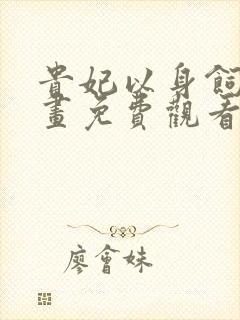 貴妃以身飼
畫免費觀看
廖會妹